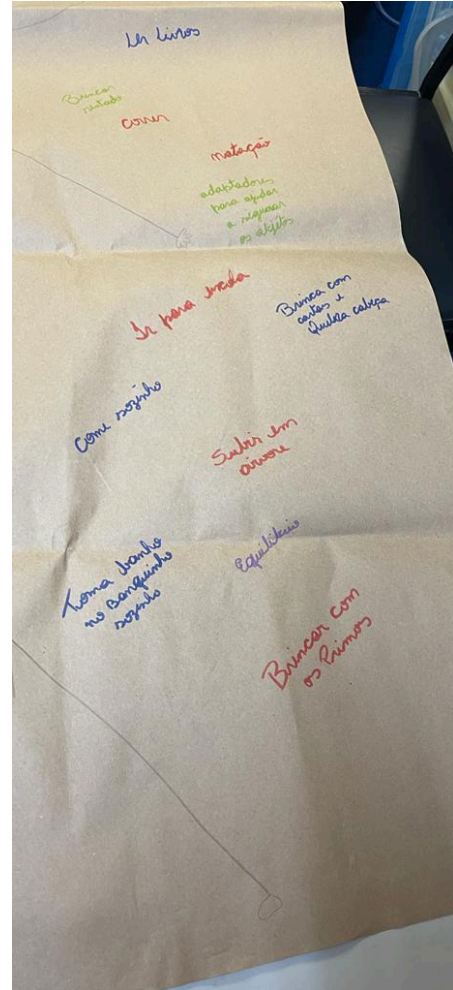 Ler livros
Brincar
sentado
correr
natação
adaptadores
para ajudar
a segurar
os objetos
Ir para escola
Brinca com
cartas e
Quebra cabeça
Come sozinho
Subir em
árvore
Equilíbrio
Toma banho
no Banquinho
sozinho
Brincar com
os Primos